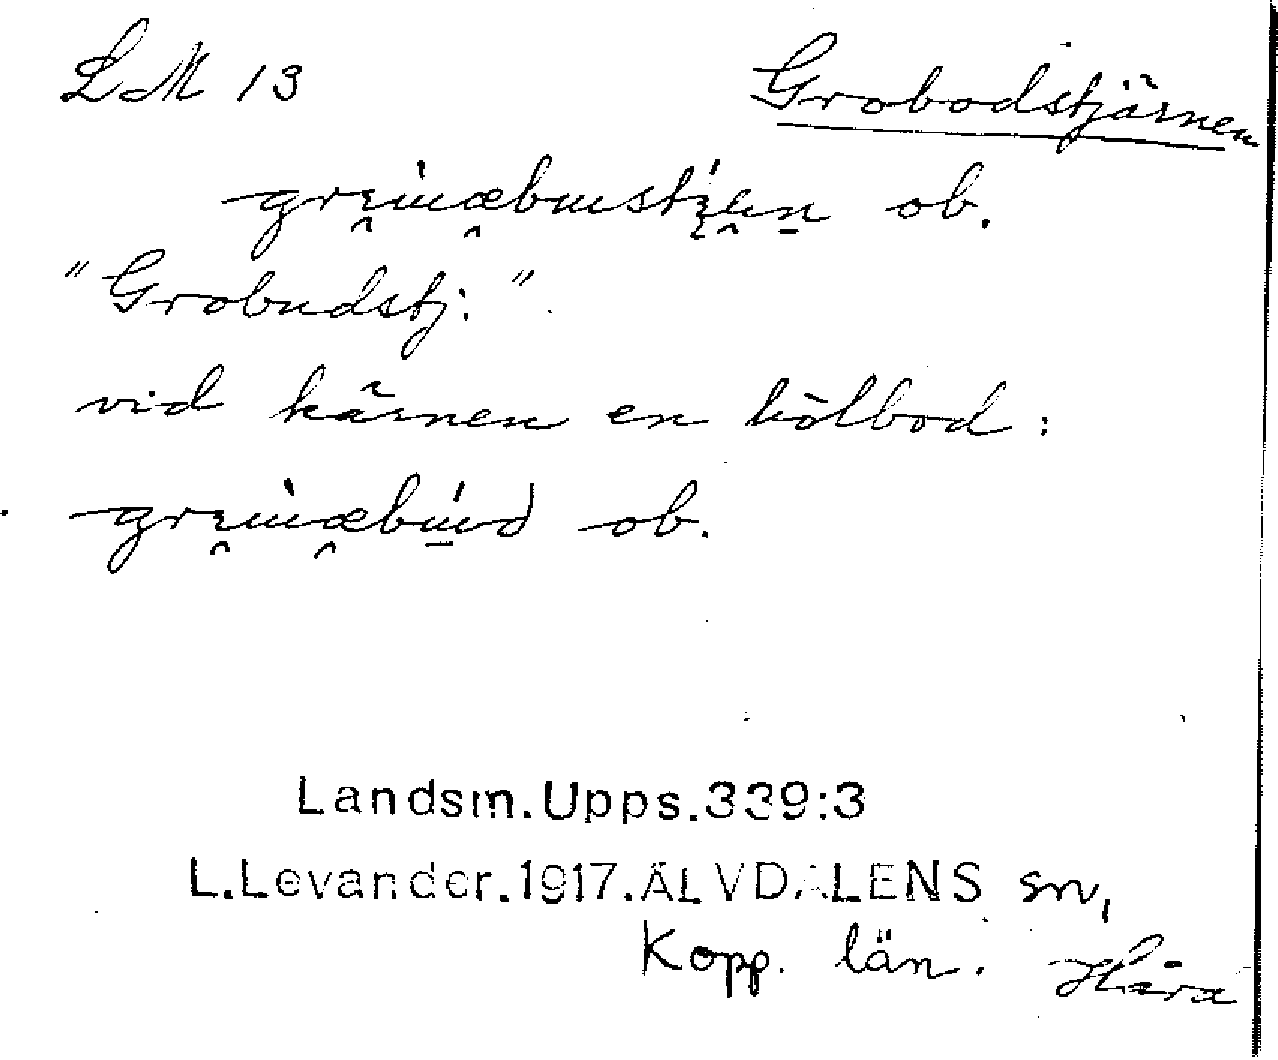 LM 13
Grobodstjärnen
ob.
"Grobudstj:".
vid kärnen en kölbod:
ob.
Landsm.Upps.339:3
L.Levander.1917.ÄLVDALENS sn,
Kopp. län.